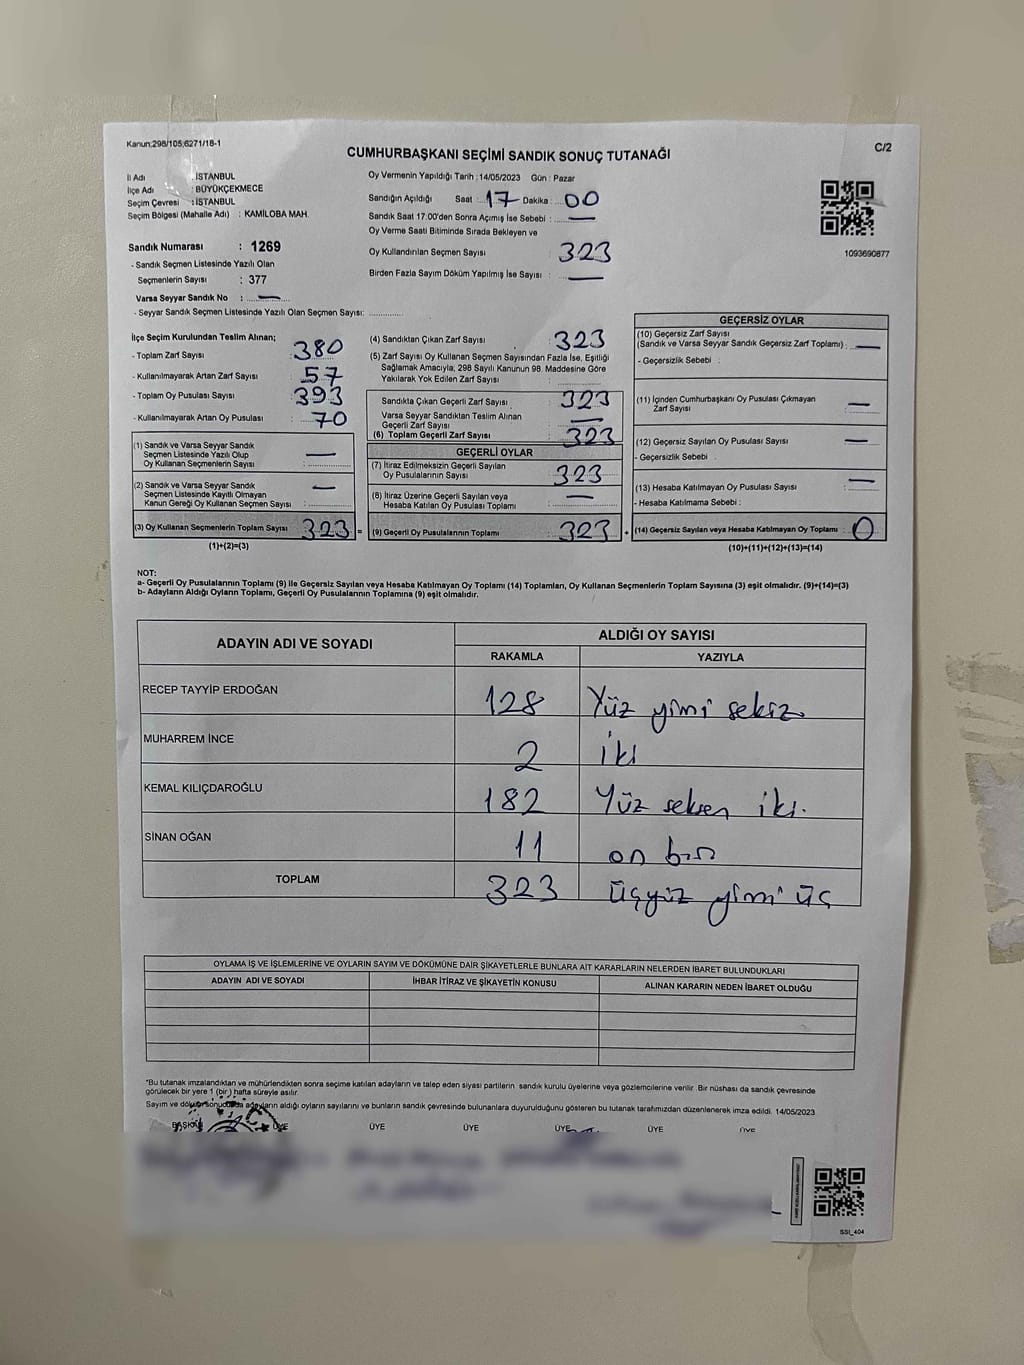 Kanun:298/105;6271/18-1
C/2
CUMHURBAŞKANI SEÇİMİ SANDIK SONUÇ TUTANAĞI
İl Adı : İSTANBUL
İlçe Adı : BÜYÜKÇEKMECE
Seçim Çevresi : İSTANBUL
Seçim Bölgesi (Mahalle Adı) : KAMİLOBA MAH.
Sandık Numarası : 1269
- Sandık Seçmen Listesinde Yazılı Olan
Seçmenlerin Sayısı : 377
Varsa Seyyar Sandık No : —
- Seyyar Sandık Seçmen Listesinde Yazılı Olan Seçmen Sayısı: ............
Oy Vermenin Yapıldığı Tarih : 14/05/2023 Gün : Pazar
Sandığın Açıldığı Saat : 17 Dakika : 00
Sandık Saat 17:00'den Sonra Açımış İse Sebebi : —
Oy Verme Saati Bitiminde Sırada Bekleyen ve
Oy Kullandırılan Seçmen Sayısı : 323
Birden Fazla Sayım Döküm Yapılmış İse Sayısı : —
1093690877
İlçe Seçim Kurulundan Teslim Alınan;
- Toplam Zarf Sayısı : 380
- Kullanılmayarak Artan Zarf Sayısı : 57
- Toplam Oy Pusulası Sayısı : 393
- Kullanılmayarak Artan Oy Pusulası : 70
(1) Sandık ve Varsa Seyyar Sandık
Seçmen Listesinde Yazılı Olup
Oy Kullanan Seçmenlerin Sayısı : —
(2) Sandık ve Varsa Seyyar Sandık
Seçmen Listesinde Kayıtlı Olmayan
Kanun Gereği Oy Kullanan Seçmen Sayısı : —
(3) Oy Kullanan Seçmenlerin Toplam Sayısı : 323 =
(1)+(2)=(3)
(4) Sandıktan Çıkan Zarf Sayısı : 323
(5) Zarf Sayısı Oy Kullanan Seçmen Sayısından Fazla İse, Eşitliği
Sağlamak Amacıyla, 298 Sayılı Kanunun 98. Maddesine Göre
Yakılarak Yok Edilen Zarf Sayısı :
Sandıkta Çıkan Geçerli Zarf Sayısı : 323
Varsa Seyyar Sandıktan Teslim Alınan
Geçerli Zarf Sayısı : —
(6) Toplam Geçerli Zarf Sayısı : 323
GEÇERLİ OYLAR
(7) İtiraz Edilmeksizin Geçerli Sayılan
Oy Pusulalarının Sayısı : 323
(8) İtiraz Üzerine Geçerli Sayılan veya
Hesaba Katılan Oy Pusulası Toplamı : —
(9) Geçerli Oy Pusulalarının Toplamı : 323 +
GEÇERSİZ OYLAR
(10) Geçersiz Zarf Sayısı
(Sandık ve Varsa Seyyar Sandık Geçersiz Zarf Toplamı) : —
- Geçersizlik Sebebi :
(11) İçinden Cumhurbaşkanı Oy Pusulası Çıkmayan
Zarf Sayısı : —
(12) Geçersiz Sayılan Oy Pusulası Sayısı : —
- Geçersizlik Sebebi :
(13) Hesaba Katılmayan Oy Pusulası Sayısı : —
- Hesaba Katılmama Sebebi :
(14) Geçersiz Sayılan veya Hesaba Katılmayan Oy Toplamı : 0
(10)+(11)+(12)+(13)=(14)
NOT:
a- Geçerli Oy Pusulalarının Toplamı (9) ile Geçersiz Sayılan veya Hesaba Katılmayan Oy Toplamı (14) Toplamları, Oy Kullanan Seçmenlerin Toplam Sayısına (3) eşit olmalıdır. (9)+(14)=(3)
b- Adayların Aldığı Oyların Toplamı, Geçerli Oy Pusulalarının Toplamına (9) eşit olmalıdır.
ADAYIN ADI VE SOYADI ALDIĞI OY SAYISI
RAKAMLA YAZIYLA
RECEP TAYYİP ERDOĞAN 128 Yüz yimi sekiz
MUHARREM İNCE 2 iki
KEMAL KILIÇDAROĞLU 182 Yüz seksen iki.
SİNAN OĞAN 11 on bir
TOPLAM 323 üçyüz yimi üç
OYLAMA İŞ VE İŞLEMLERİNE VE OYLARIN SAYIM VE DÖKÜMÜNE DAİR ŞİKAYETLERLE BUNLARA AİT KARARLARIN NELERDEN İBARET BULUNDUKLARI
ADAYIN ADI VE SOYADI İHBAR İTİRAZ VE ŞİKAYETİN KONUSU ALINAN KARARIN NEDEN İBARET OLDUĞU
*Bu tutanak imzalandıktan ve mühürlendikten sonra seçime katılan adayların ve talep eden siyasi partilerin sandık kurulu üyelerine veya gözlemcilerine verilir. Bir nüshası da sandık çevresinde
görülecek bir yere 1 (bir) hafta süreyle asılır.
Sayım ve döküm sonucunda adayların aldığı oyların sayılarını ve bunların sandık çevresinde bulunanlara duyurulduğunu gösteren bu tutanak tarafımızdan düzenlenerek imza edildi. 14/05/2023
BAŞKAN ÜYE ÜYE ÜYE ÜYE ÜYE ÜYE
SSI_404